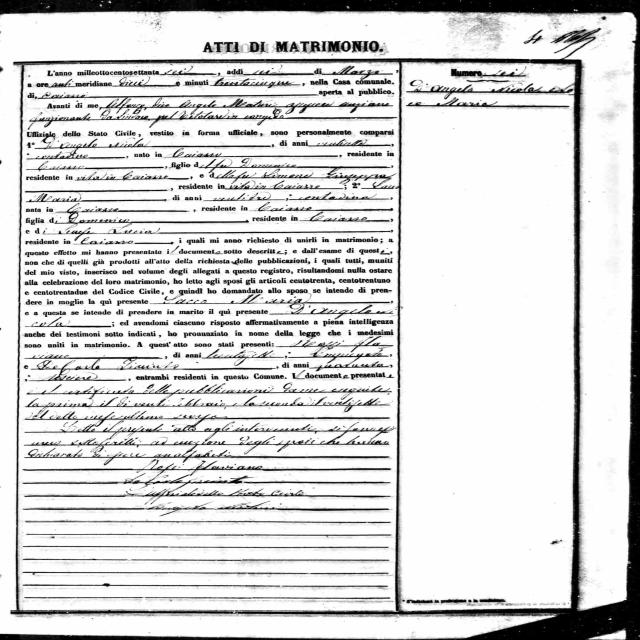 ATTI DI MATRIMONIO.
L'anno milleottocentosettanta sei, addì sei di Marzo
a ore anti meridiane dieci e minuti trentacinque, nella Casa comunale
di Caiazzo aperta al pubblico.
Avanti di me, Angelo assessore anziano
funzionante da Sindaco, pel titolare in congedo
Uffiziale dello Stato Civile, vestito in forma uffiziale, sono personalmente comparsi
1° D'Angelo Nicola, di anni ventotto
contadino, nato in Caiazzo, residente in
Caiazzo, figlio di fu Domenico
residente in vita in Caiazzo, e di Simone Giuseppa
, residente in vita in Caiazzo; 2° Sacco
Maria di anni ventidue, contadina
nata in Caiazzo, residente in Caiazzo
figlia di Domenico, residente in Caiazzo
e di Lucia
residente in Caiazzo, i quali mi hanno richiesto di unirli in matrimonio; a
questo effetto mi hanno presentato i documenti sotto descritti; e dall'esame di questi
non che di quelli già prodotti all'atto della richiesta delle pubblicazioni, i quali tutti, muniti
del mio visto, inserisco nel volume degli allegati a questo registro, risultandomi nulla ostare
alla celebrazione del loro matrimonio, ho letto agli sposi gli articoli centotrenta, centotrentuno
e centotrentadue del Codice Civile, e quindi ho domandato allo sposo se intende di prendere
in moglie la quì presente Sacco Maria
e a questa se intende di prendere in marito il quì presente D'Angelo Ni
cola; ed avendomi ciascuno risposto affermativamente a piena intelligenza
anche dei testimoni sotto indicati, ho pronunziato in nome della legge che i medesimi
sono uniti in matrimonio. A quest'atto sono stati presenti: Rossi Fla
viano, di anni, Impiegato
e, di anni quaranta
, entrambi residenti in questo Comune. I documenti presentati
è il certificato delle pubblicazioni da me eseguite
la prima il dì venti febbraio, e la seconda il ventisette
del detto mese ultimo scorso.
Letto il presente atto agli intervenuti, si sono
meco sottoscritti, ad eccezione degli sposi che hanno
dichiarato di essere analfabeti
Rossi Flaviano
L'uffiziale dello Stato Civile
Angelo
Numero sei
D'Angelo Nicola e Sac
co Maria